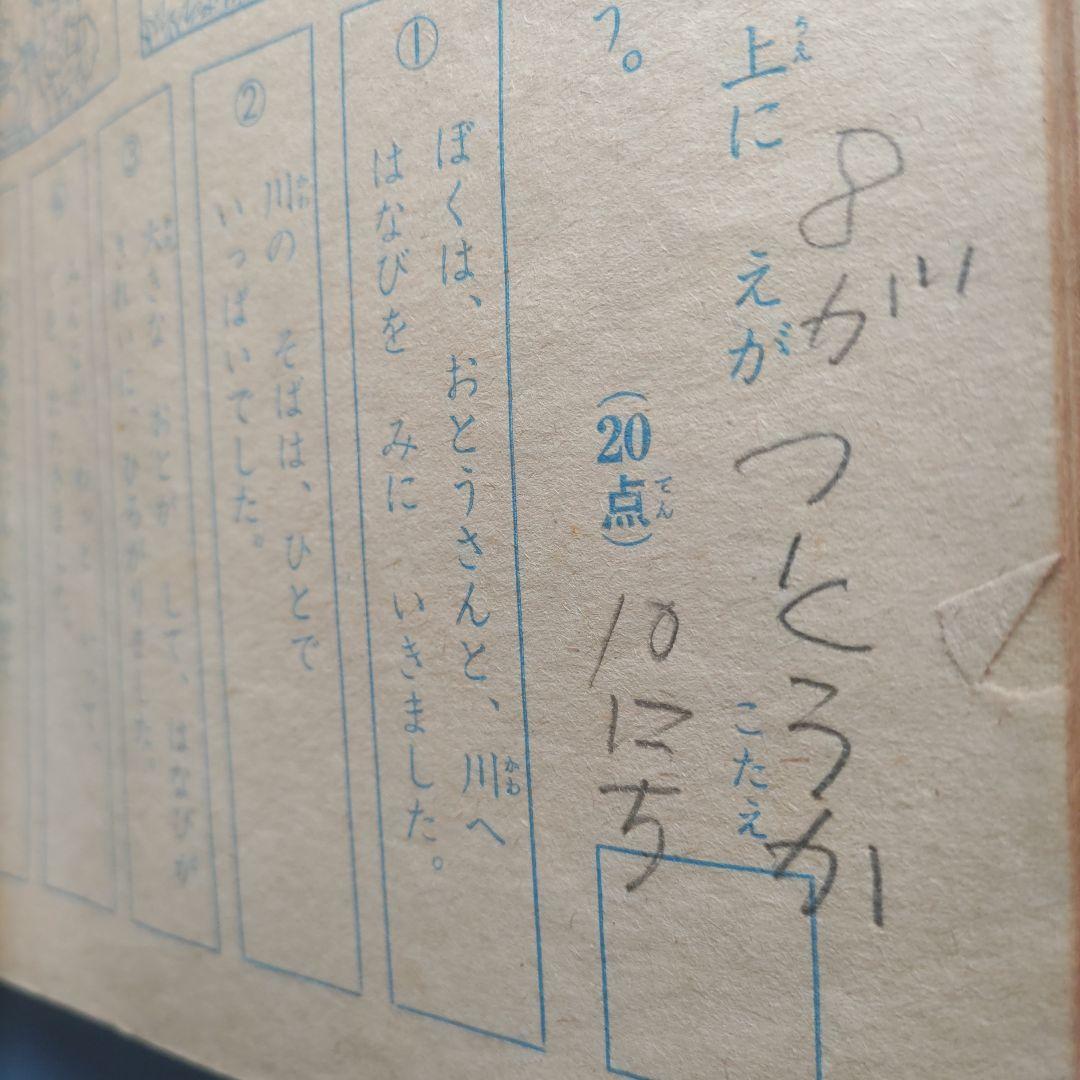 8がつところか
10にち
上に えが こたえ
う。 (20点)
①
ぼくは、おとうさんと、川へ
はなびを みに いきました。
②
川の そばは、ひとで
いっぱいでした。
③
大きな おとが して、はなびが
きれいに、ひろがりました。
④